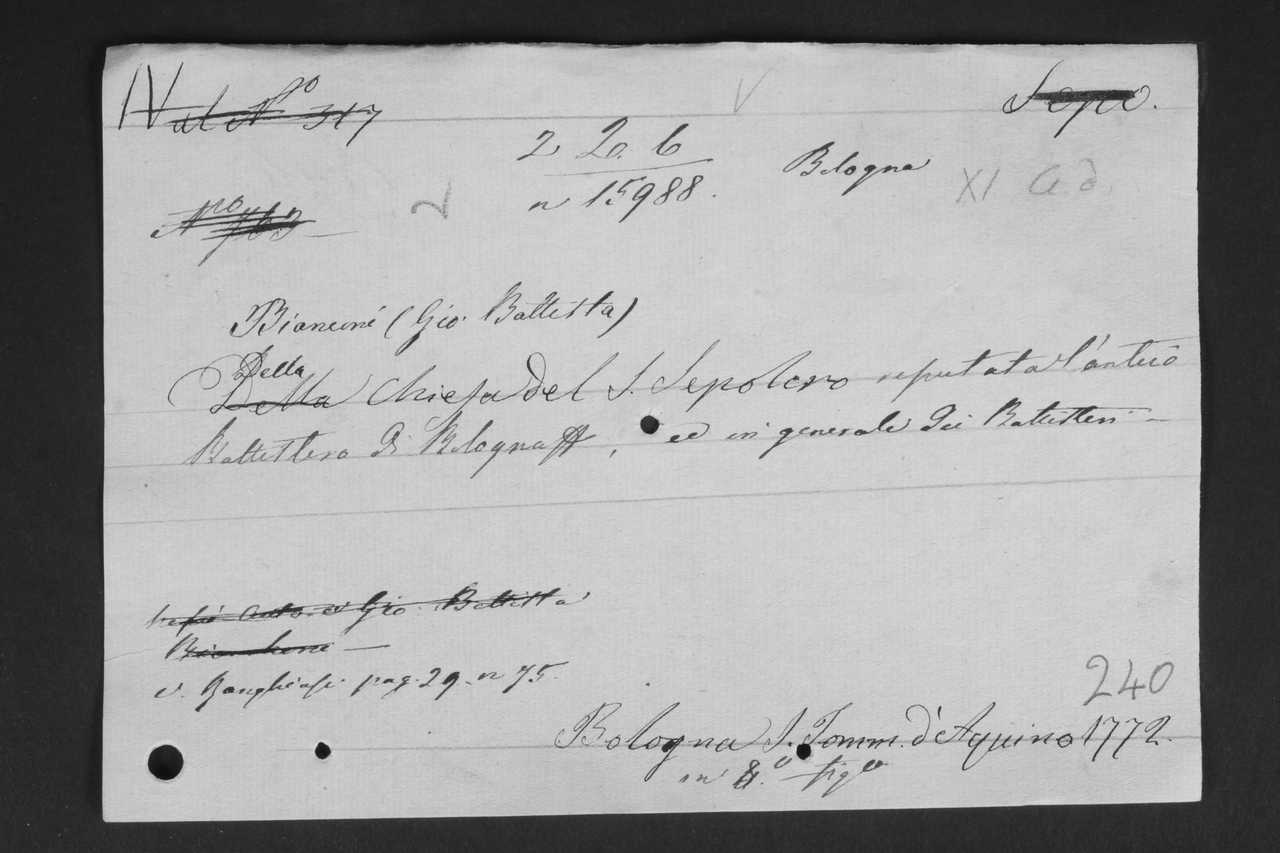 IV al No 317
Sepo.
2 20. 6
n 15988.
Bologna
XI
2
Nro 763
Bianconi (Gio. Battista)
Della
Della Chiesa del S. Sepolcro reputata l'antico
Battistero di Bologna, ed in generale dei Battisteri
Gio. Battista
v. Ranghiasi pag. 29. n 75.
240
Bologna S. Tomm. d'Aquino 1772.
in 4.o figo